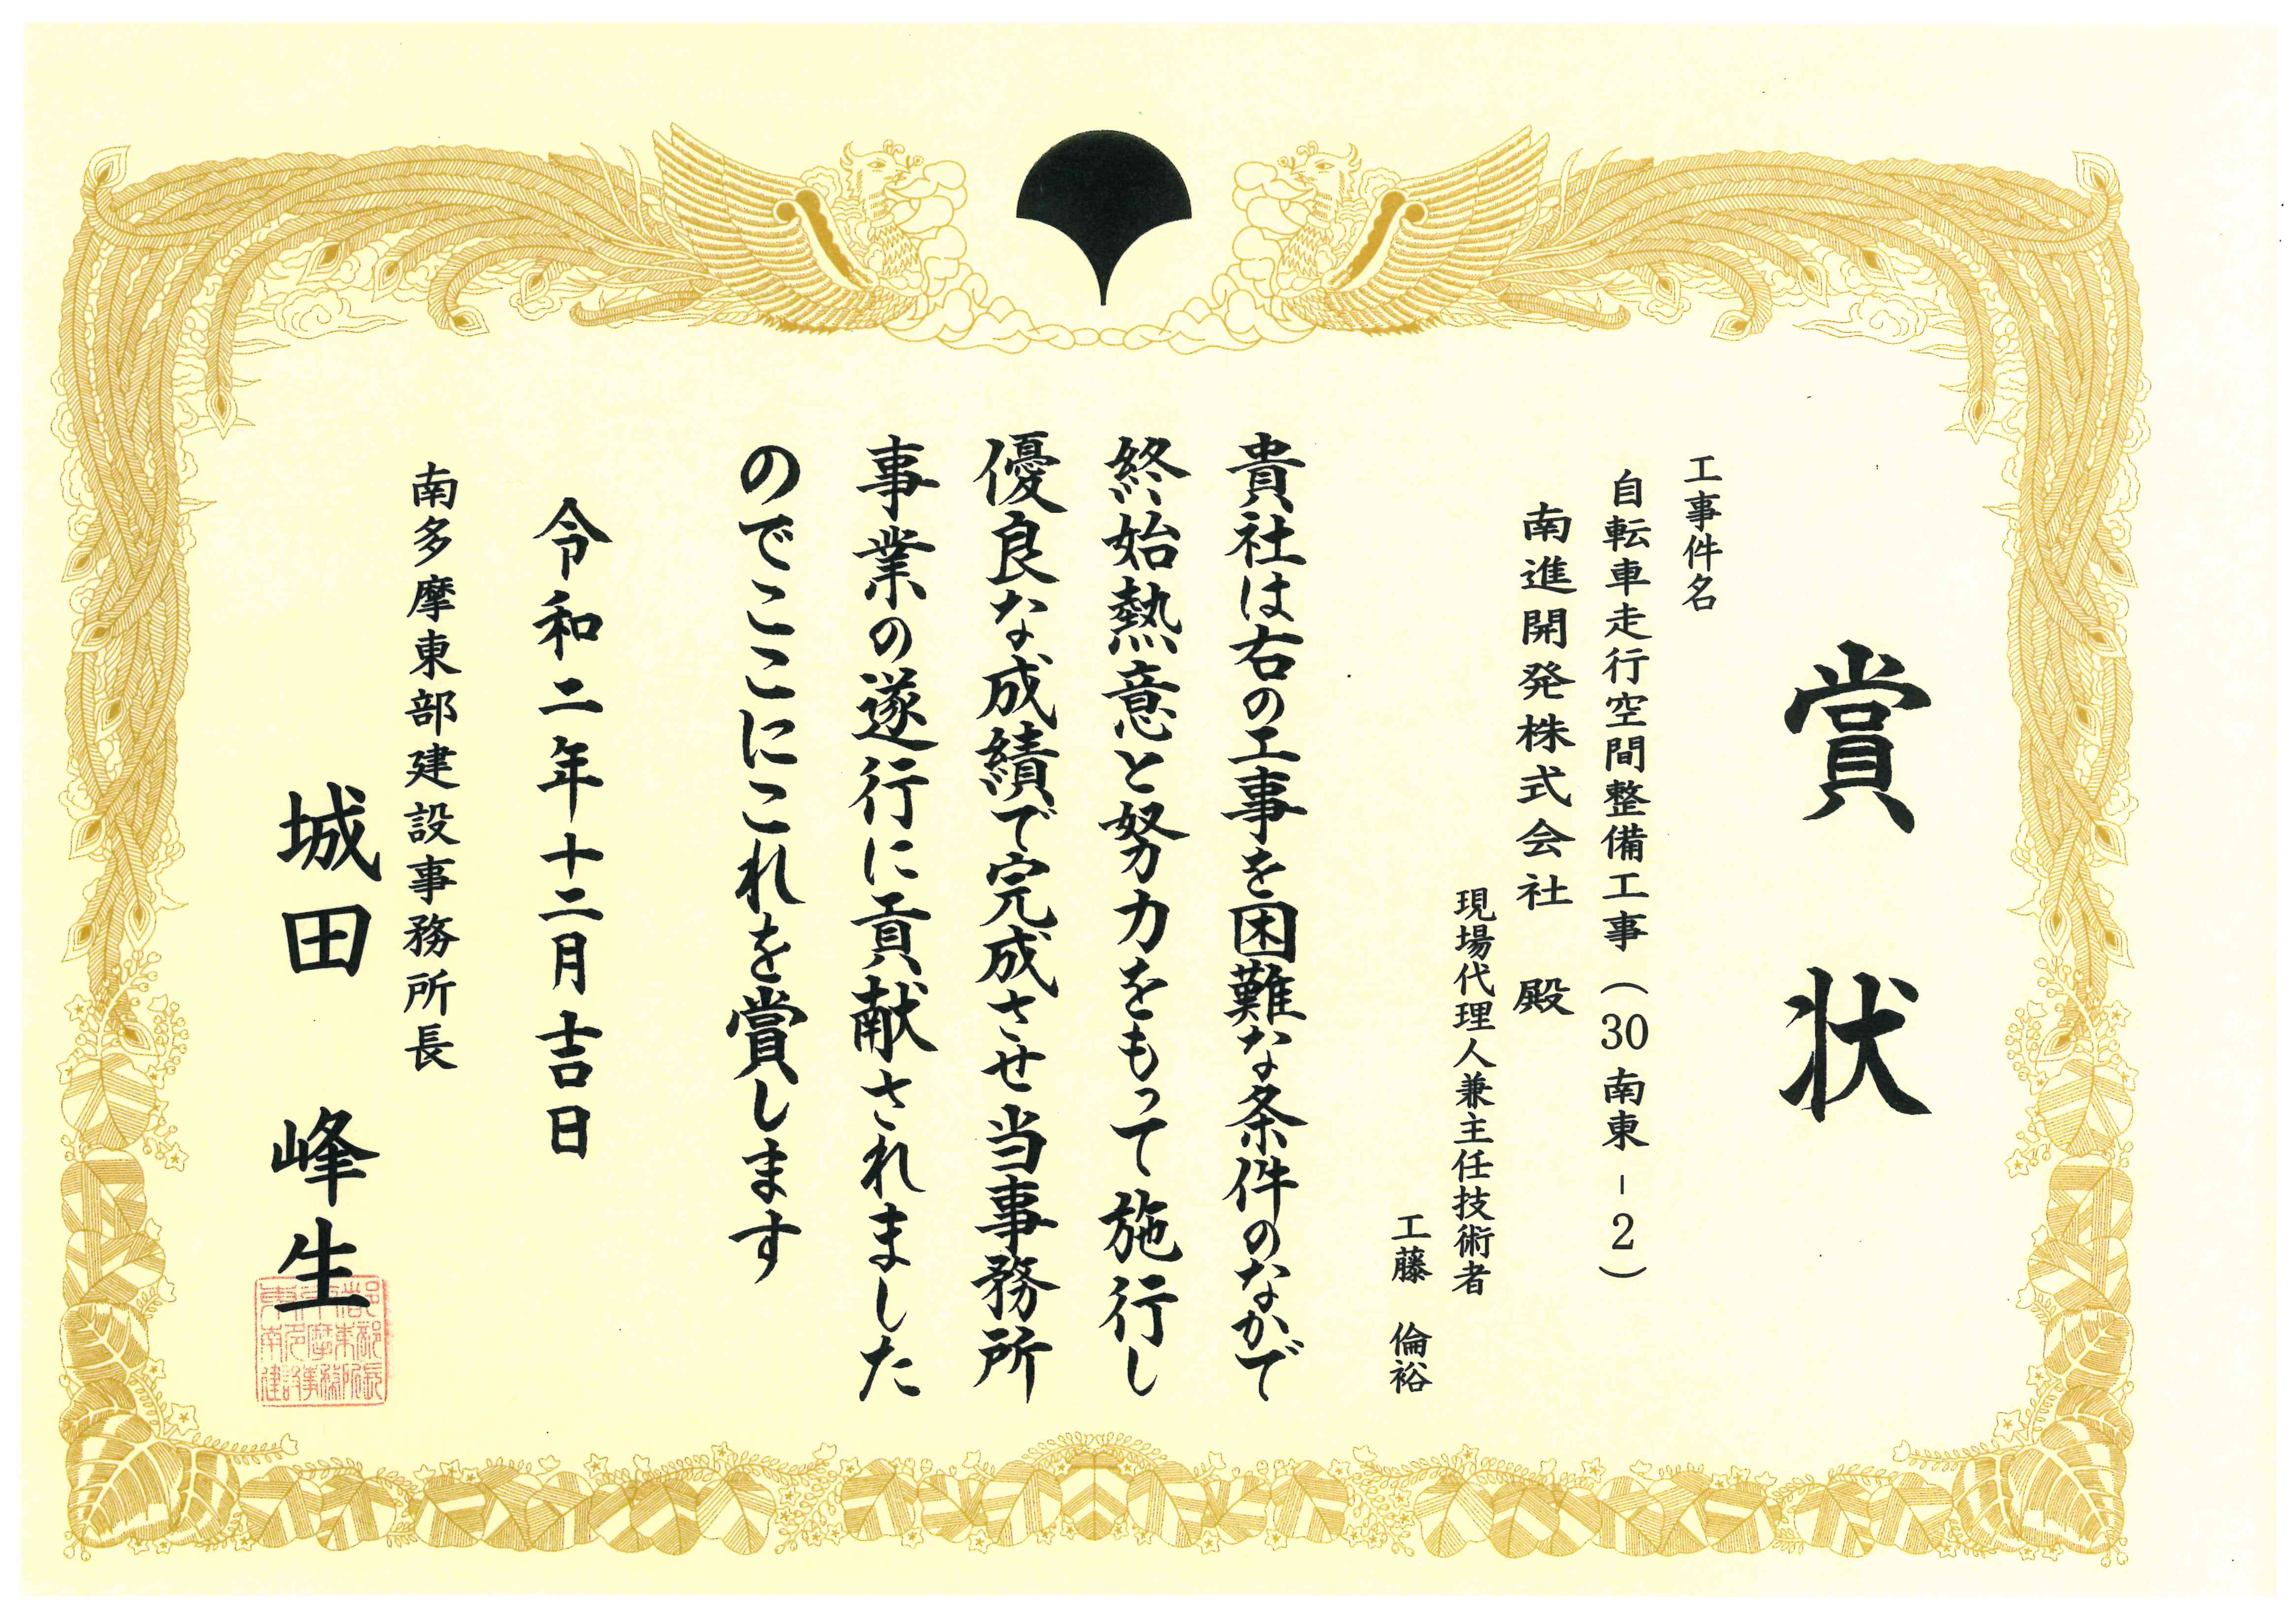 賞状
工事件名
自転車走行空間整備工事(30南東-2)
南進開発株式会社 殿
現場代理人兼主任技術者
工藤 倫裕
貴社は右の工事を困難な条件のなかで
終始熱意と努力をもって施行し
優良な成績で完成させ当事務所
事業の遂行に貢献されました
のでここにこれを賞します
令和二年十二月吉日
南多摩東部建設事務所長
城田 峰生